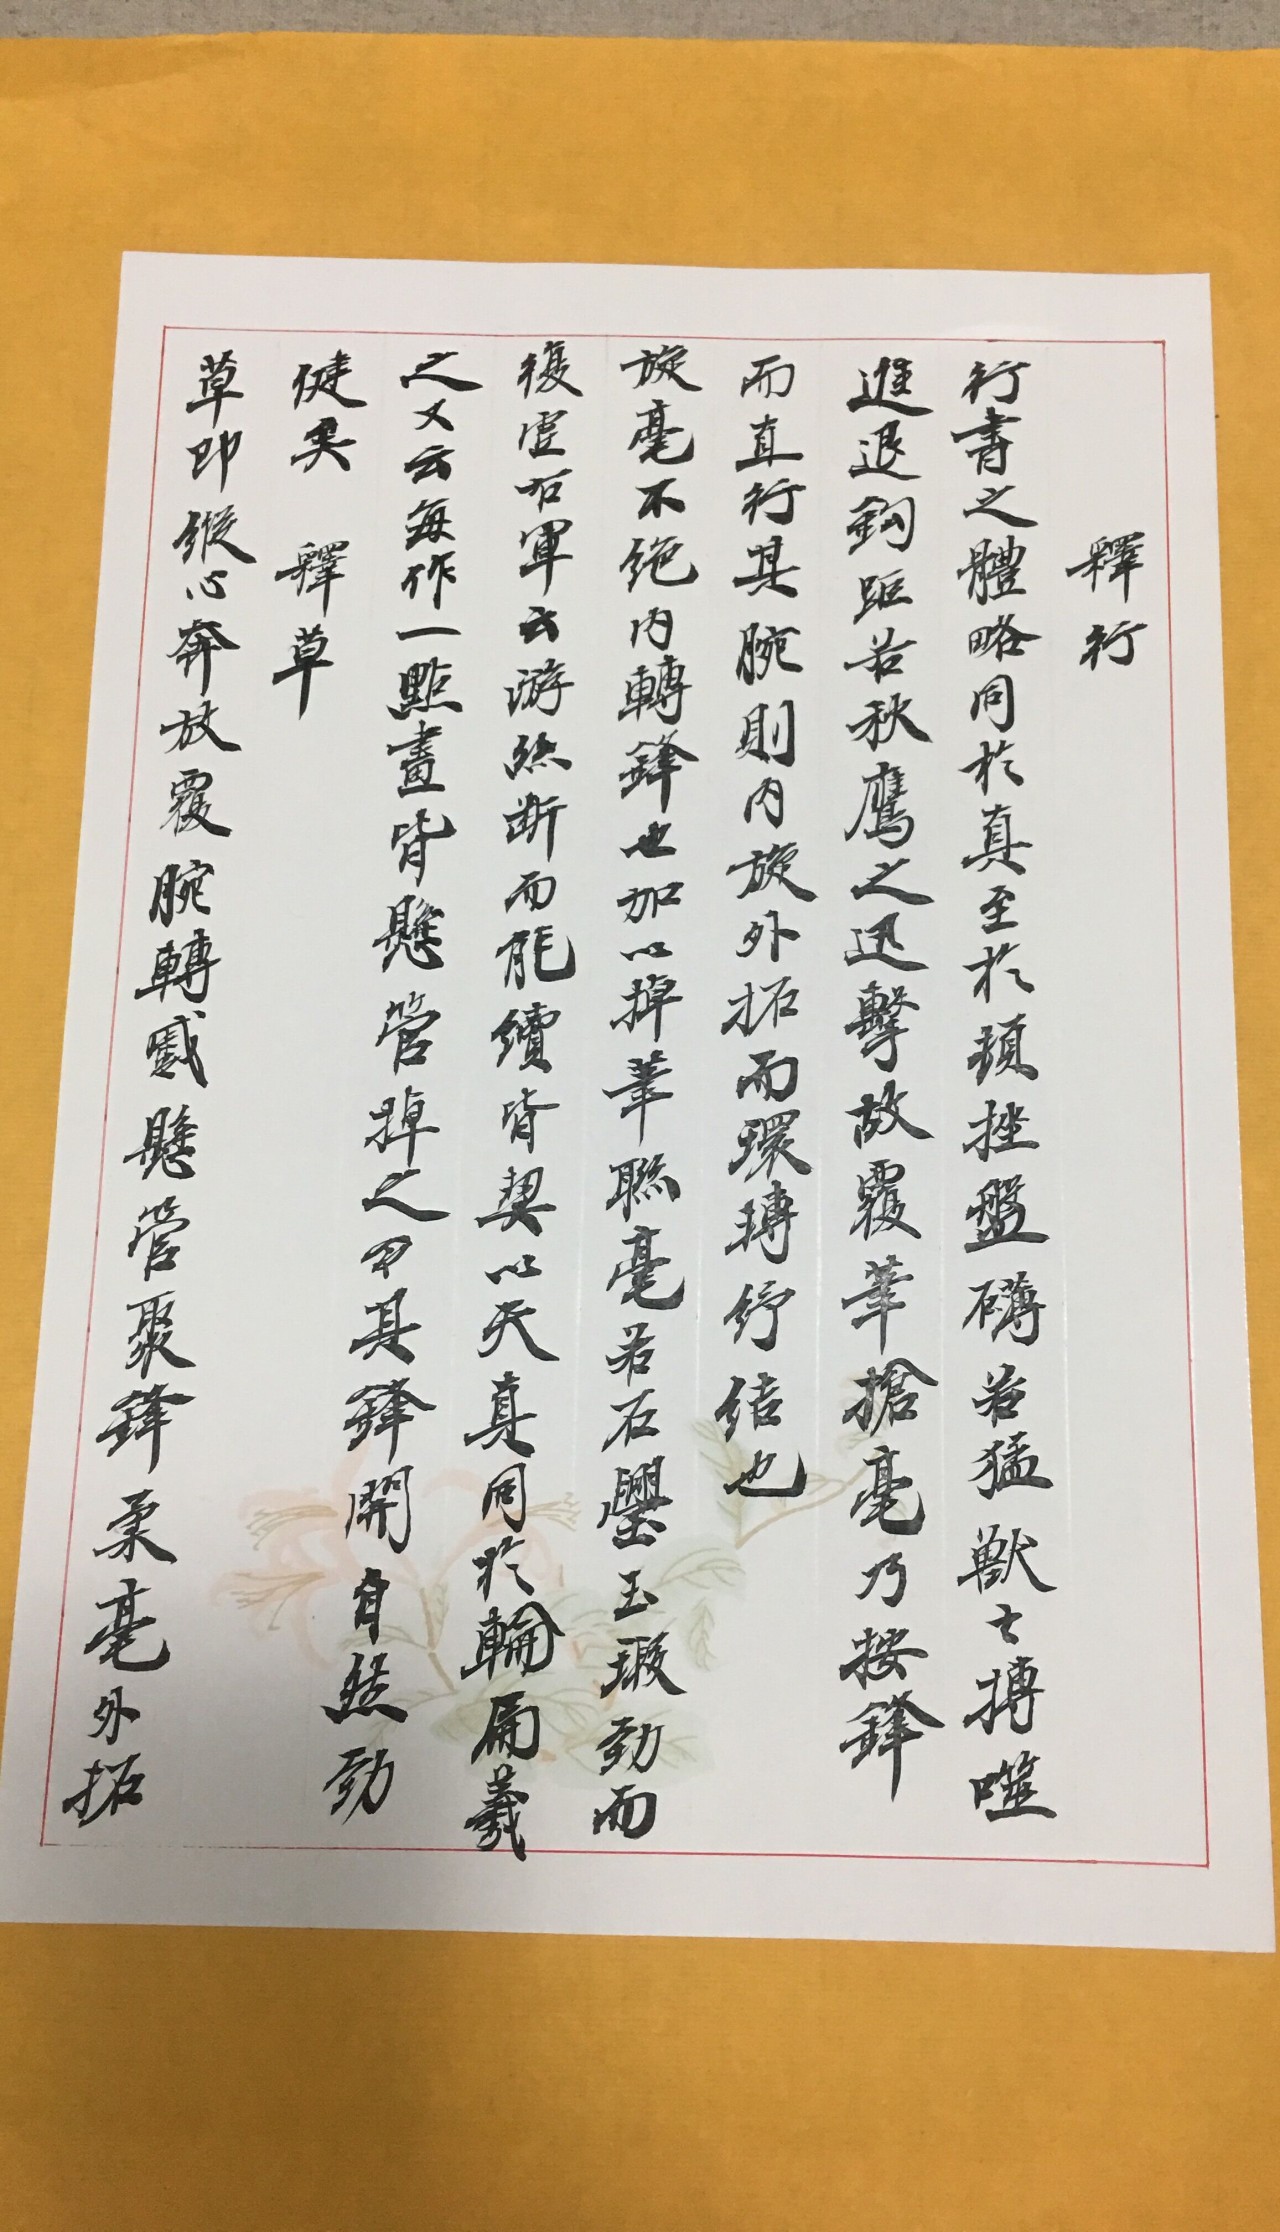 釋行
行書之體略同於真至於頓挫盤礴若猛獸之搏噬
進退鉤距若秋鷹之迅擊故覆筆搶毫乃按鋒
而直行其腕則内旋外拓而環轉紓結也
旋毫不絕内轉鋒也加以掉筆聯毫若石璺玉瑕勁而
復虛右軍云游絲斷而能續皆契以天真同於輪扁羲
之又云每作一點畫皆懸管掉之令其鋒開自然勁
健矣 釋草
草即縱心奔放覆腕轉蹙懸管聚鋒柔毫外拓